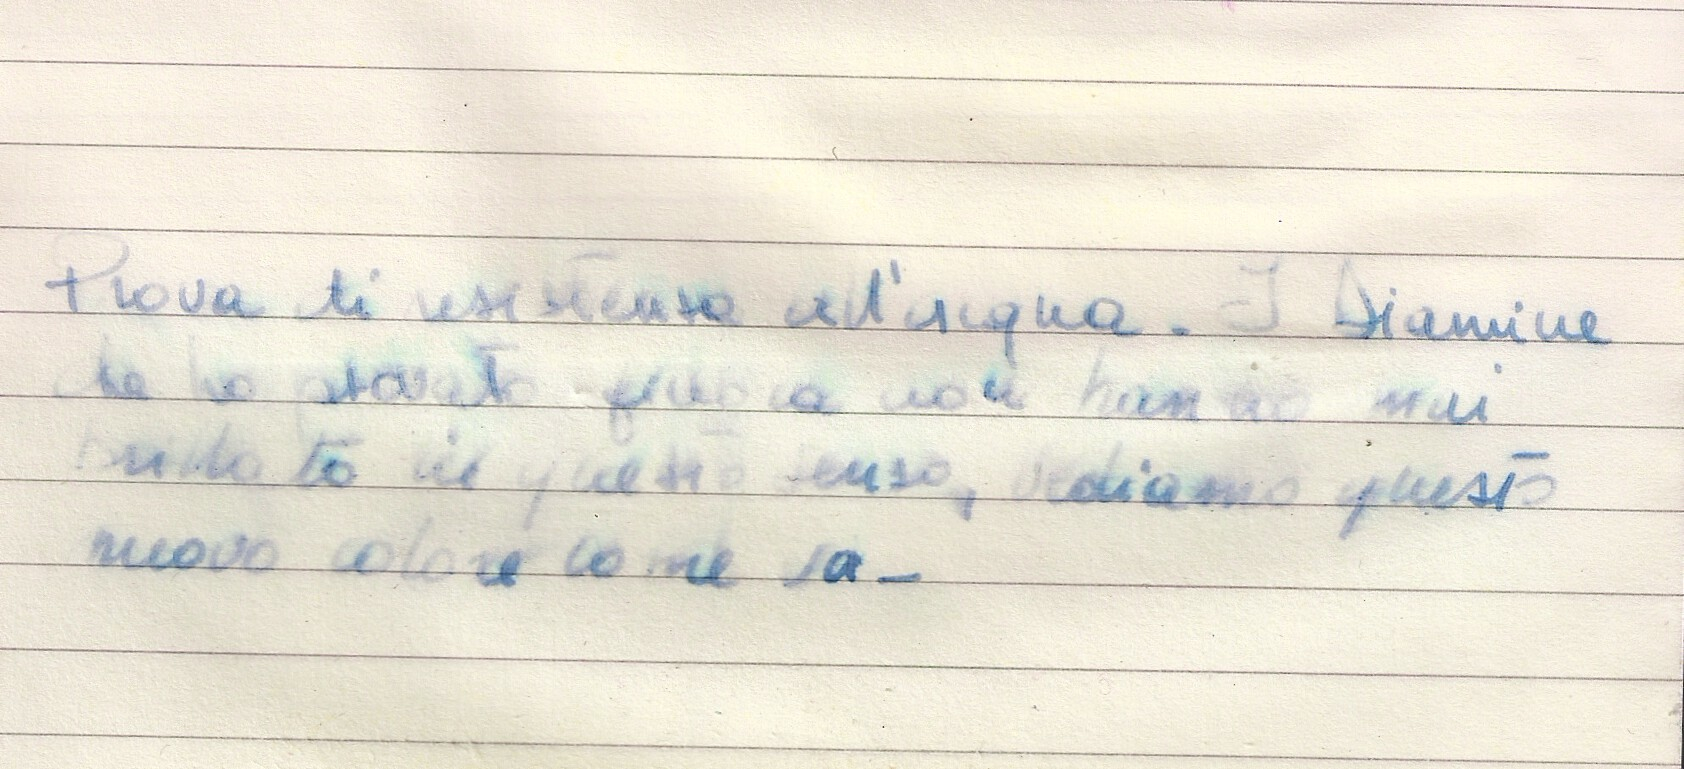 Prova di resistenza all'acqua. I Diamine
che ho provato finora non hanno mai
brillato in questo senso, vediamo questo
nuovo colore come va_